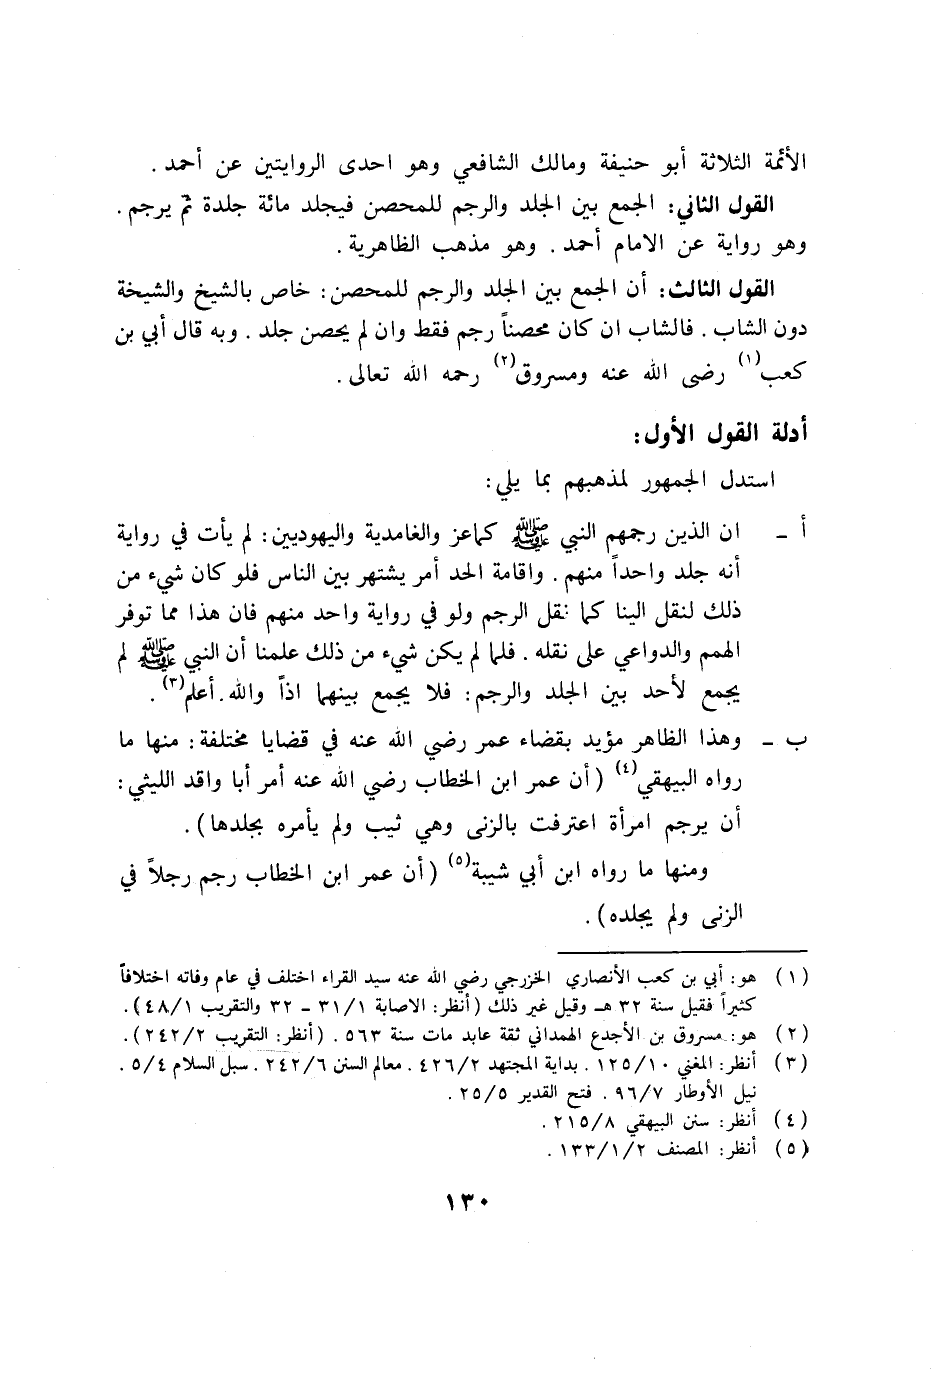 الأئمة الثلاثة أبو حنيفة ومالك الشافعي وهو احدى الروايتين عن أحمد .
القول الثاني: الجمع بين الجلد والرجم للمحصن فيجلد مائة جلدة ثم يرجم .
وهو رواية عن الامام أحمد . وهو مذهب الظاهرية .
القول الثالث: أن الجمع بين الجلد والرجم للمحصن: خاص بالشيخ والشيخة
دون الشاب . فالشاب ان كان محصناً رجم فقط وان لم يحصن جلد . وبه قال أبي بن
كعب(١) رضى الله عنه ومسروق(٢) رحمه الله تعالى .
أدلة القول الأول:
استدل الجمهور لمذهبهم بما يلي:
أ - ان الذين رجمهم النبي ﷺ كماعز والغامدية واليهوديين: لم يأت في رواية
أنه جلد واحداً منهم . واقامة الحد أمر يشتهر بين الناس فلو كان شيء من
ذلك لنقل الينا كما نقل الرجم ولو في رواية واحد منهم فان هذا مما توفر
الهمم والدواعي على نقله . فلما لم يكن شيء من ذلك علمنا أن النبي ﷺ لم
يجمع لأحد بين الجلد والرجم: فلا يجمع بينهما اذاً والله.أعلم(٣) .
ب - وهذا الظاهر مؤيد بقضاء عمر رضي الله عنه في قضايا مختلفة: منها ما
رواه البيهقي(٤) (أن عمر ابن الخطاب رضي الله عنه أمر أبا واقد الليثي:
أن يرجم امرأة اعترفت بالزنى وهي ثيب ولم يأمره بجلدها) .
ومنها ما رواه ابن أبي شيبة(٥) (أن عمر ابن الخطاب رجم رجلاً في
الزنى ولم يجلده) .
(١) هو: أبي بن كعب الأنصاري الخزرجي رضي الله عنه سيد القراء اختلف في عام وفاته اختلافاً
كثيراً فقيل سنة ٣٢ هـ وقيل غير ذلك (أنظر: الاصابة ٣١/١ - ٣٢ والتقريب ٤٨/١) .
(٢) هو: مسروق بن الأجدع الهمداني ثقة عابد مات سنة ٥٦٣ . (أنظر: التقريب ٢٤٢/٢) .
(٣) أنظر: المغني ١٢٥/١٠ . بداية المجتهد ٤٢٦/٢ . معالم السنن ٢٤٢/٦ . سبل السلام ٥/٤ .
نيل الأوطار ٩٦/٧ . فتح القدير ٢٥/٥ .
(٤) أنظر: سنن البيهقي ٢١٥/٨ .
(٥) أنظر: المصنف ١٣٣/١/٢ .
١٣٠